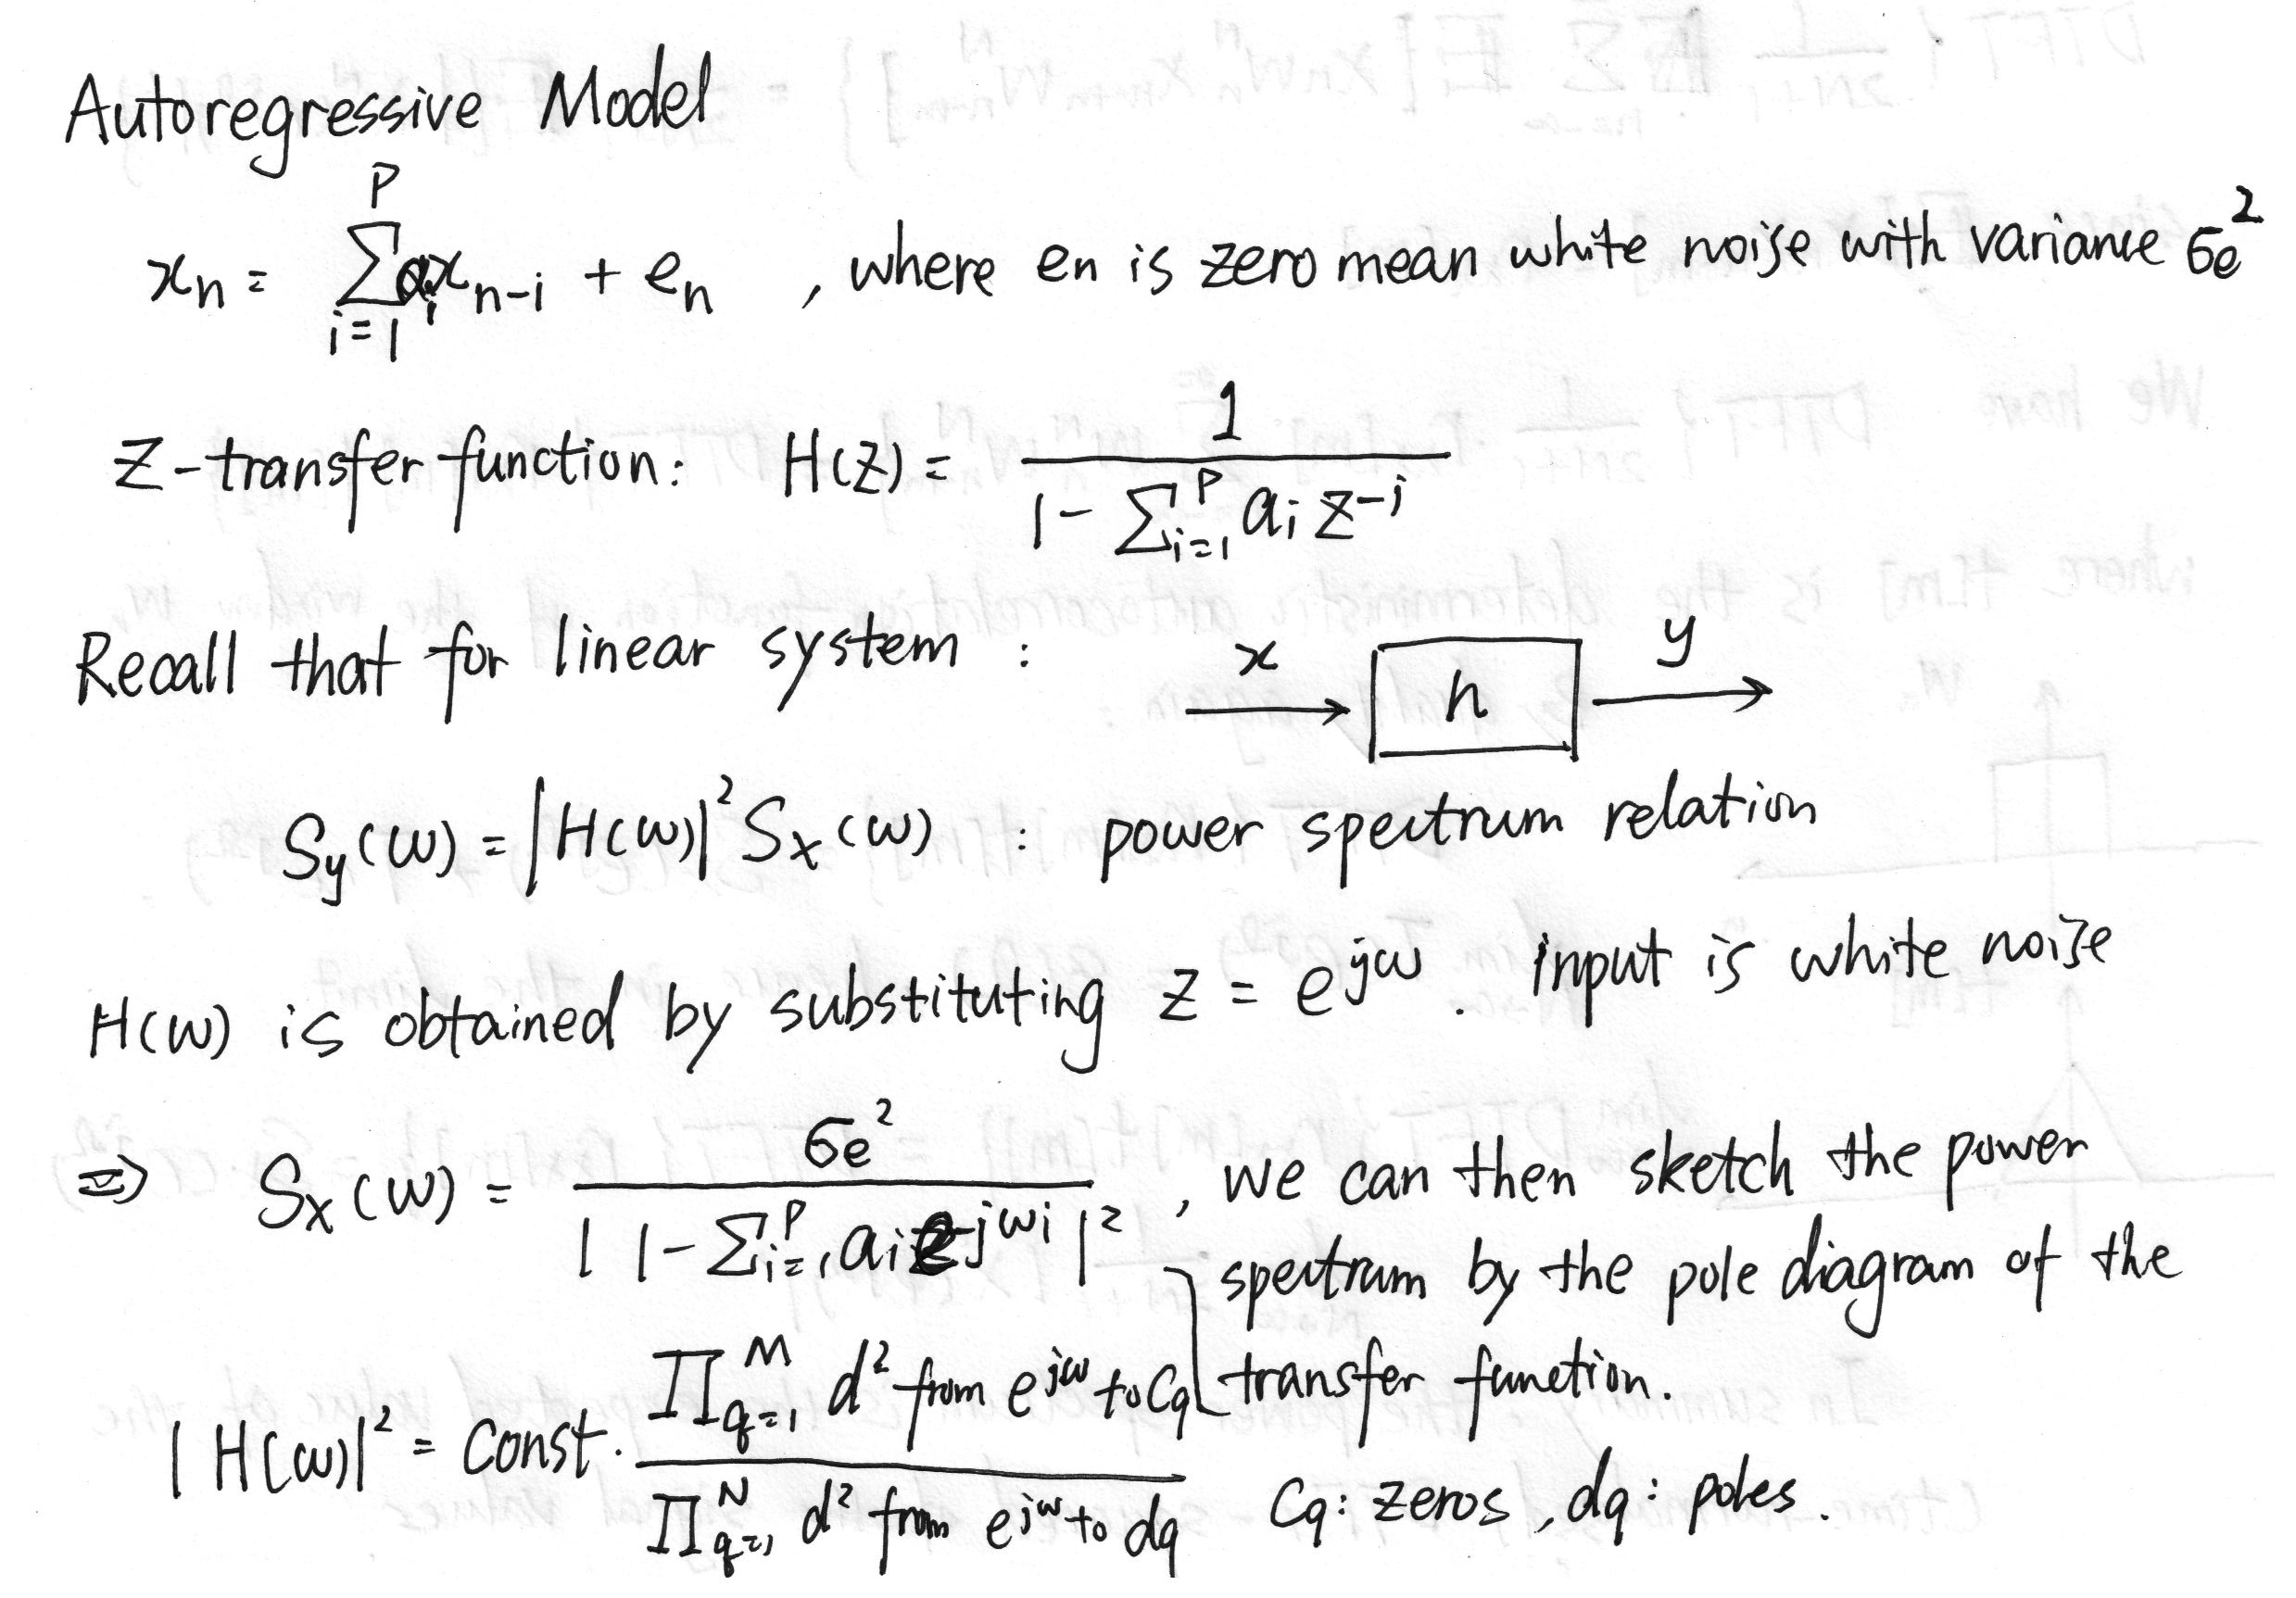 Autoregressive Model
xₙ = Σᵢ₌₁ᴾ aᵢxₙ₋ᵢ + eₙ , where en is zero mean white noise with variance σe²
Z-transfer function: H(z) = 1 / (1 - Σᵢ₌₁ᴾ aᵢ z⁻ⁱ)
Recall that for linear system : x → h → y
Sy(ω) = |H(ω)|² Sx(ω) : power spectrum relation
H(ω) is obtained by substituting z = e^{jω}. input is white noise
⇒ Sx(ω) = σe² / |1 - Σᵢ₌₁ᴾ aᵢ e^{-jωi}|² , we can then sketch the power
spectrum by the pole diagram of the
transfer function.
|H(ω)|² = Const. ∏_{q=1}^{M} d² from e^{jω} to Cq / ∏_{q=1}^{N} d² from e^{jω} to dq
Cq: zeros, dq: poles.